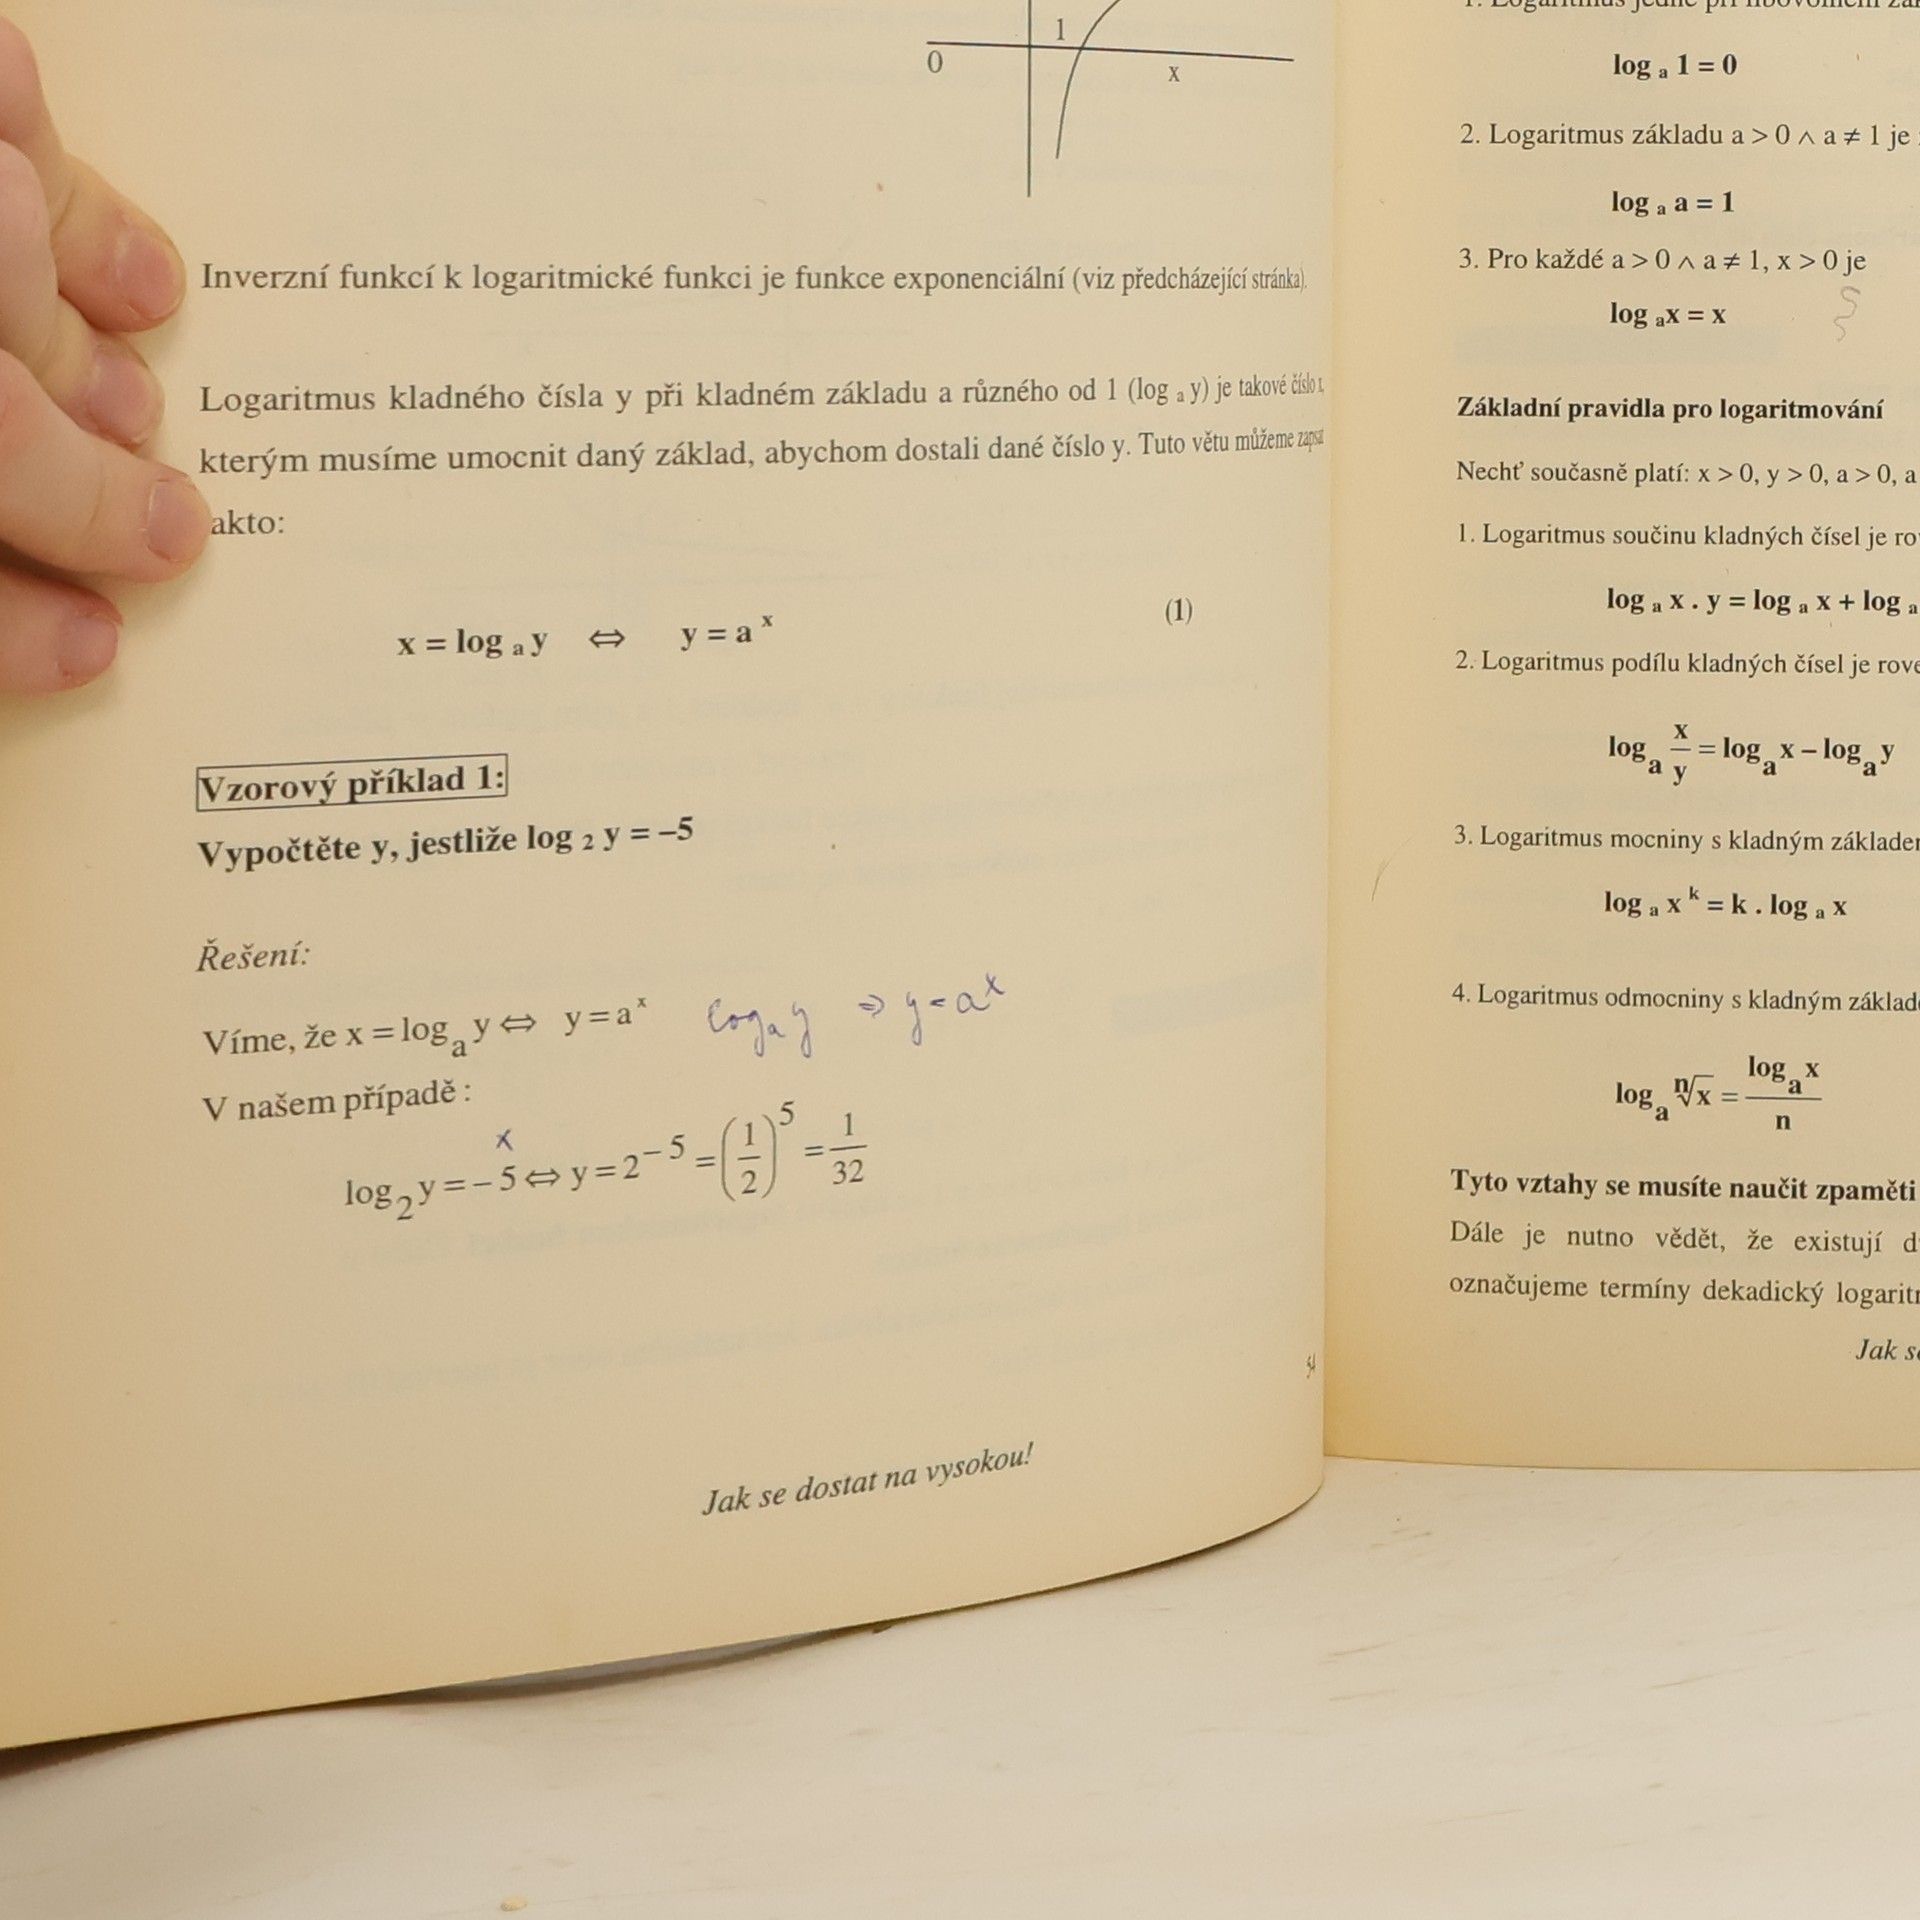 1
0
x
Inverzní funkcí k logaritmické funkci je funkce exponenciální (viz předcházející stránka).
Logaritmus kladného čísla y při kladném základu a různého od 1 (log a y) je takové číslo x,
kterým musíme umocnit daný základ, abychom dostali dané číslo y. Tuto větu můžeme zapsat
akto:
x = log a y ⇔ y = a x (1)
Vzorový příklad 1:
Vypočtěte y, jestliže log 2 y = –5
Řešení:
Víme, že x = log a y ⇔ y = a x log a y ⇒ y = a x
V našem případě :
x
log 2 y = – 5 ⇔ y = 2 – 5 = (1/2) 5 = 1/32
54
Jak se dostat na vysokou!
1. Logaritmus
log a 1 = 0
2. Logaritmus základu a > 0 ∧ a ≠ 1 je
log a a = 1
3. Pro každé a > 0 ∧ a ≠ 1, x > 0 je
log a x = x
Základní pravidla pro logaritmování
Nechť současně platí: x > 0, y > 0, a > 0, a
1. Logaritmus součinu kladných čísel je ro
log a x . y = log a x + log a
2. Logaritmus podílu kladných čísel je rove
log a x/y = log a x – log a y
3. Logaritmus mocniny s kladným základem
log a x k = k . log a x
4. Logaritmus odmocniny s kladným základ
log a n√x = log a x / n
Tyto vztahy se musíte naučit zpaměti
Dále je nutno vědět, že existují d
označujeme termíny dekadický logarit
Jak se